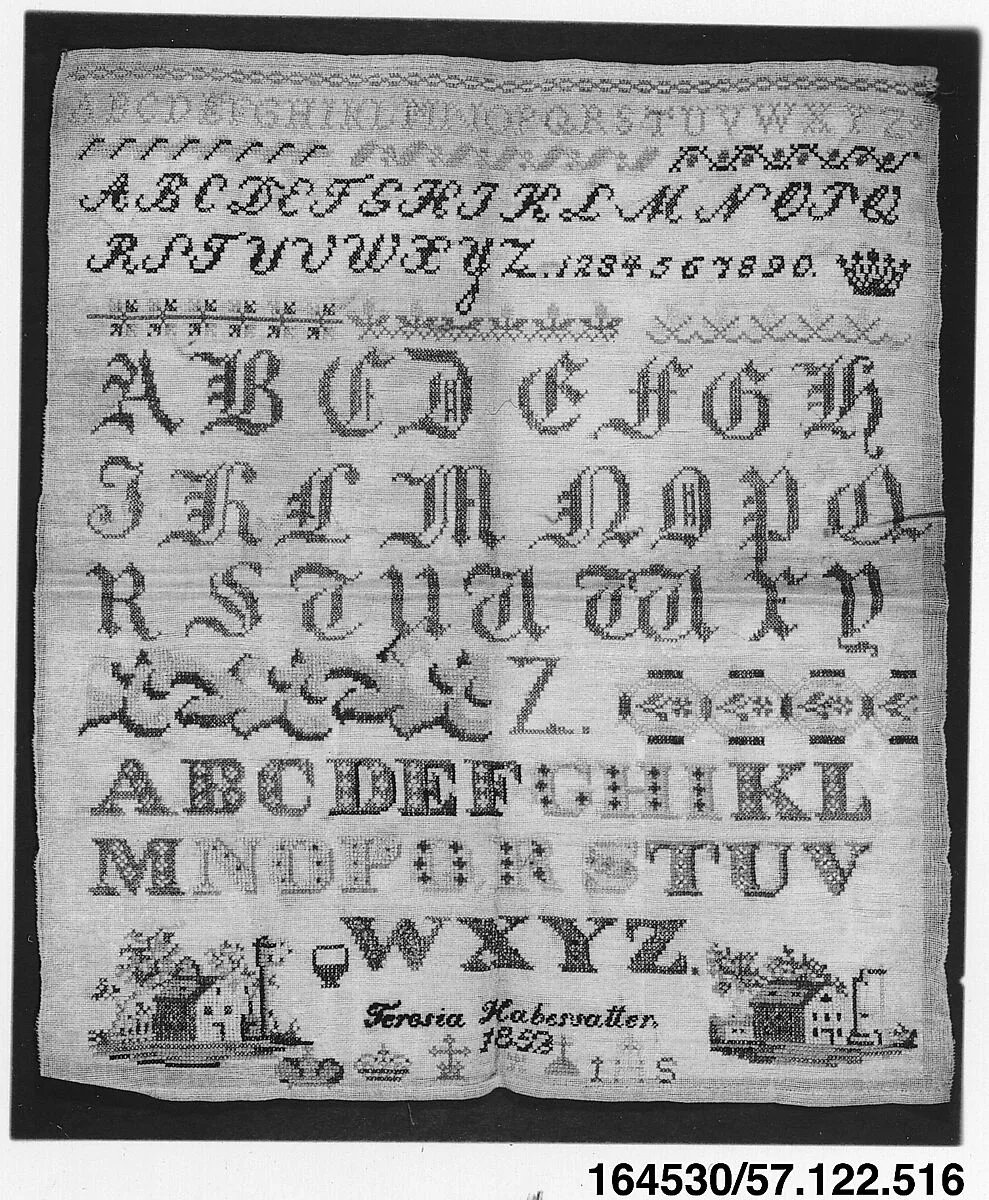 ABCDEFGHIKLMNOPQRSTUVWXYZ
ABCDEFGHIKLMNOPQ
RSTUVWXYZ.1234567890.
ABCDEFGH
IKLMNOPQ
RSTUVWXY
Z.
ABCDEFGHIKL
MNOPQRSTUV
WXYZ.
Teresia Habersatter,
1853
IHS
164530/57.122.516